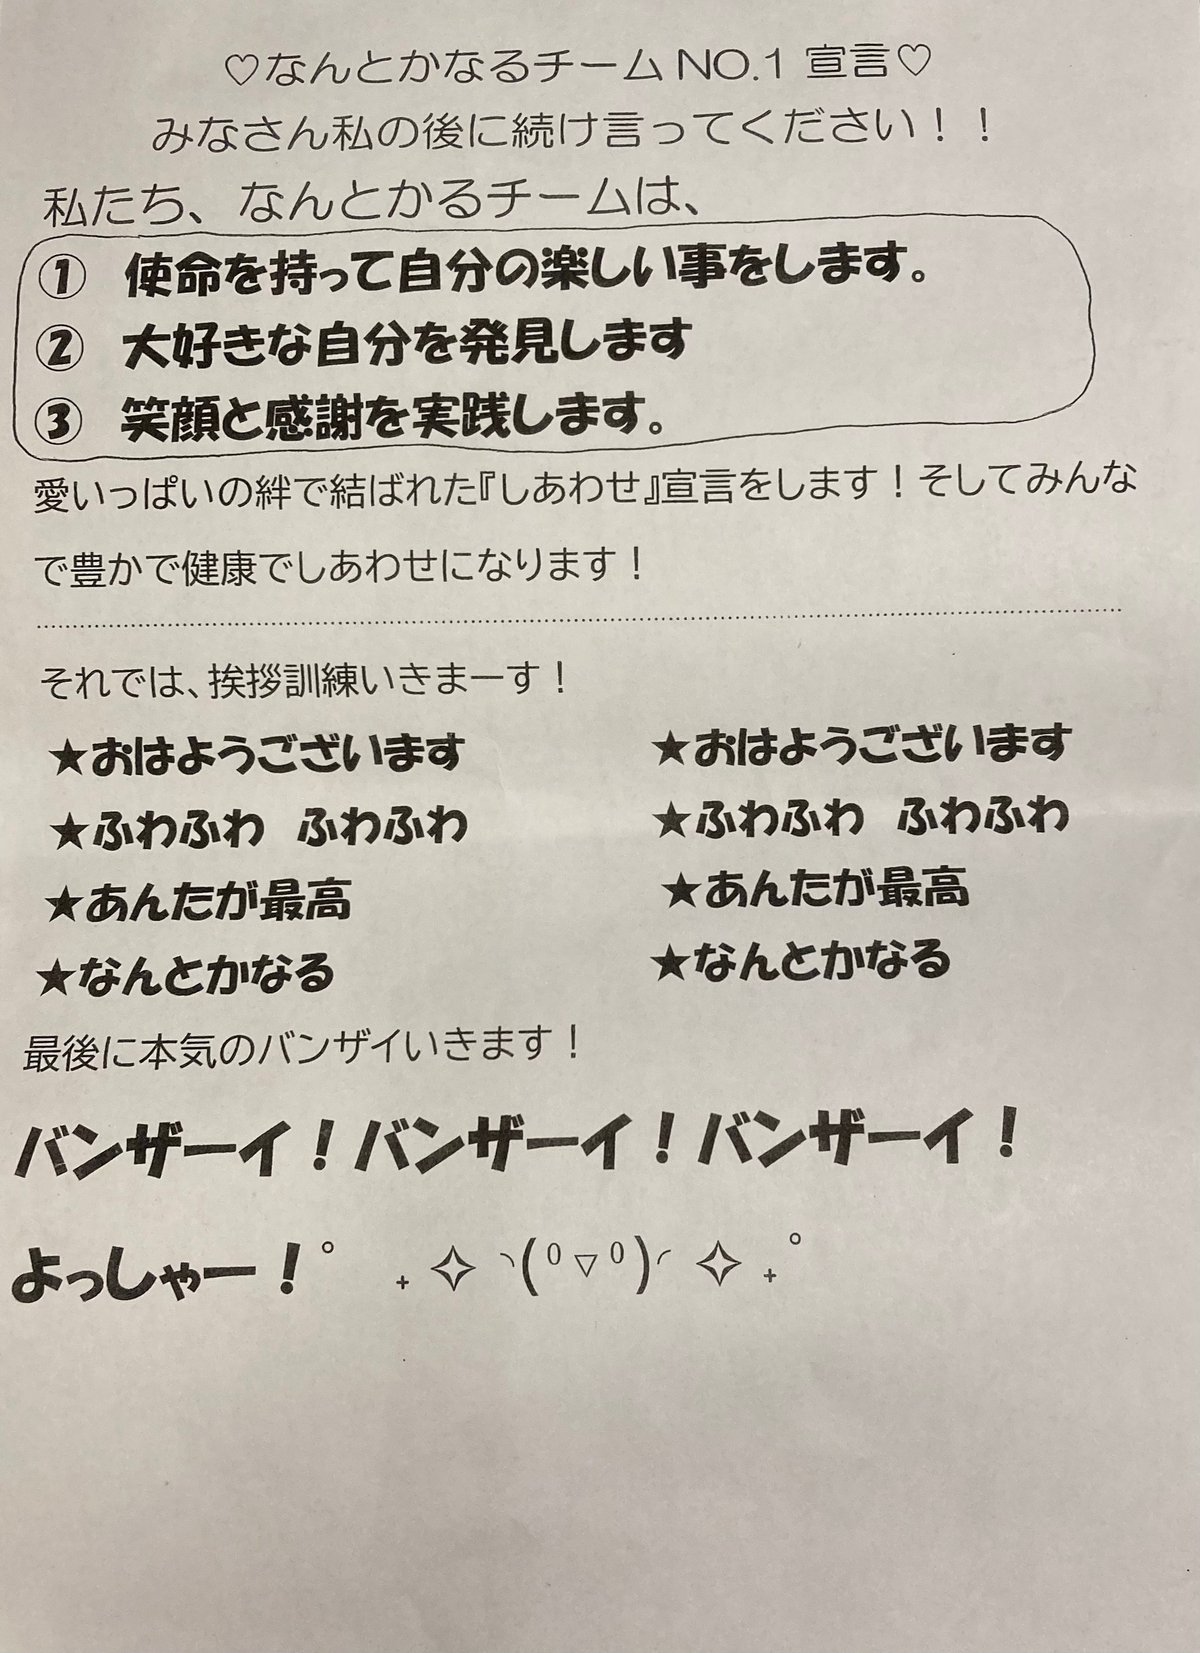 ♡なんとかなるチーム NO.1 宣言♡
みなさん私の後に続け言ってください！！
私たち、なんとかるチームは、
① 使命を持って自分の楽しい事をします。
② 大好きな自分を発見します
③ 笑顔と感謝を実践します。
愛いっぱいの絆で結ばれた『しあわせ』宣言をします！そしてみんな
で豊かで健康でしあわせになります！
それでは、挨拶訓練いきまーす！
★おはようございます ★おはようございます
★ふわふわ ふわふわ ★ふわふわ ふわふわ
★あんたが最高 ★あんたが最高
★なんとかなる ★なんとかなる
最後に本気のバンザイいきます！
バンザーイ！バンザーイ！バンザーイ！
よっしゃー！ﾟ ₊ ✧ ◝(⁰▿⁰)◜ ✧ ₊ ﾟ